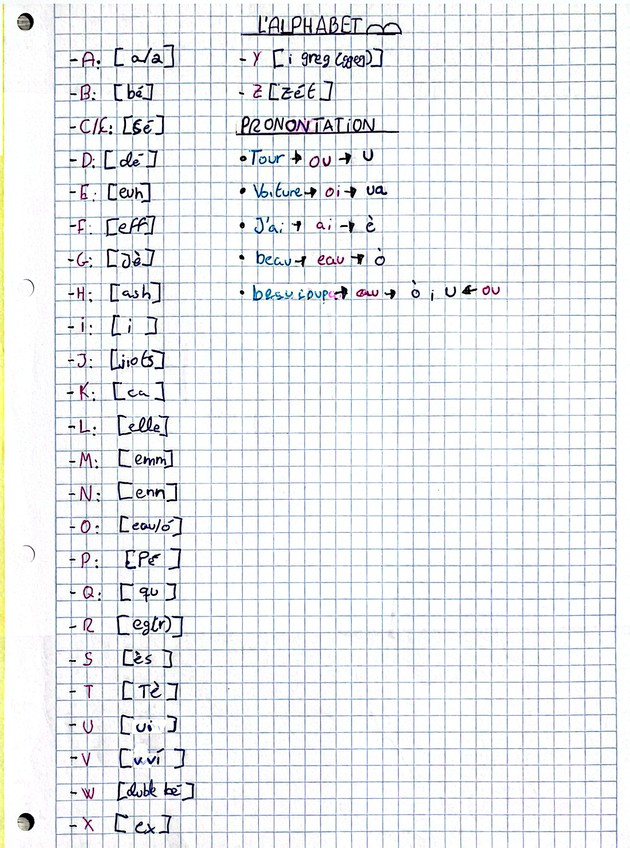 L'ALPHABET
- A: [a/a]
- B: [bé]
- C/Ç: [sé]
- D: [dé]
- E: [euh]
- F: [eff]
- G: [Jè]
- H: [ash]
- i: [i]
- J: [jiots]
- K: [ca]
- L: [elle]
- M: [emm]
- N: [enn]
- O: [eau/ó]
- P: [Pé]
- Q: [qu]
- R [eg(r)]
- S [ès]
- T [Tè]
- U [ui]
- V [vví]
- W [duble bé]
- X [ex]
- Y [i greg (ggeg)]
- Z [zét]
PRONONTATION
• Tour → ou → U
• Voiture → oi → ua
• J'ai → ai → è
• beau → eau → ò
• beaucoup → eau → ò ; U ← ou